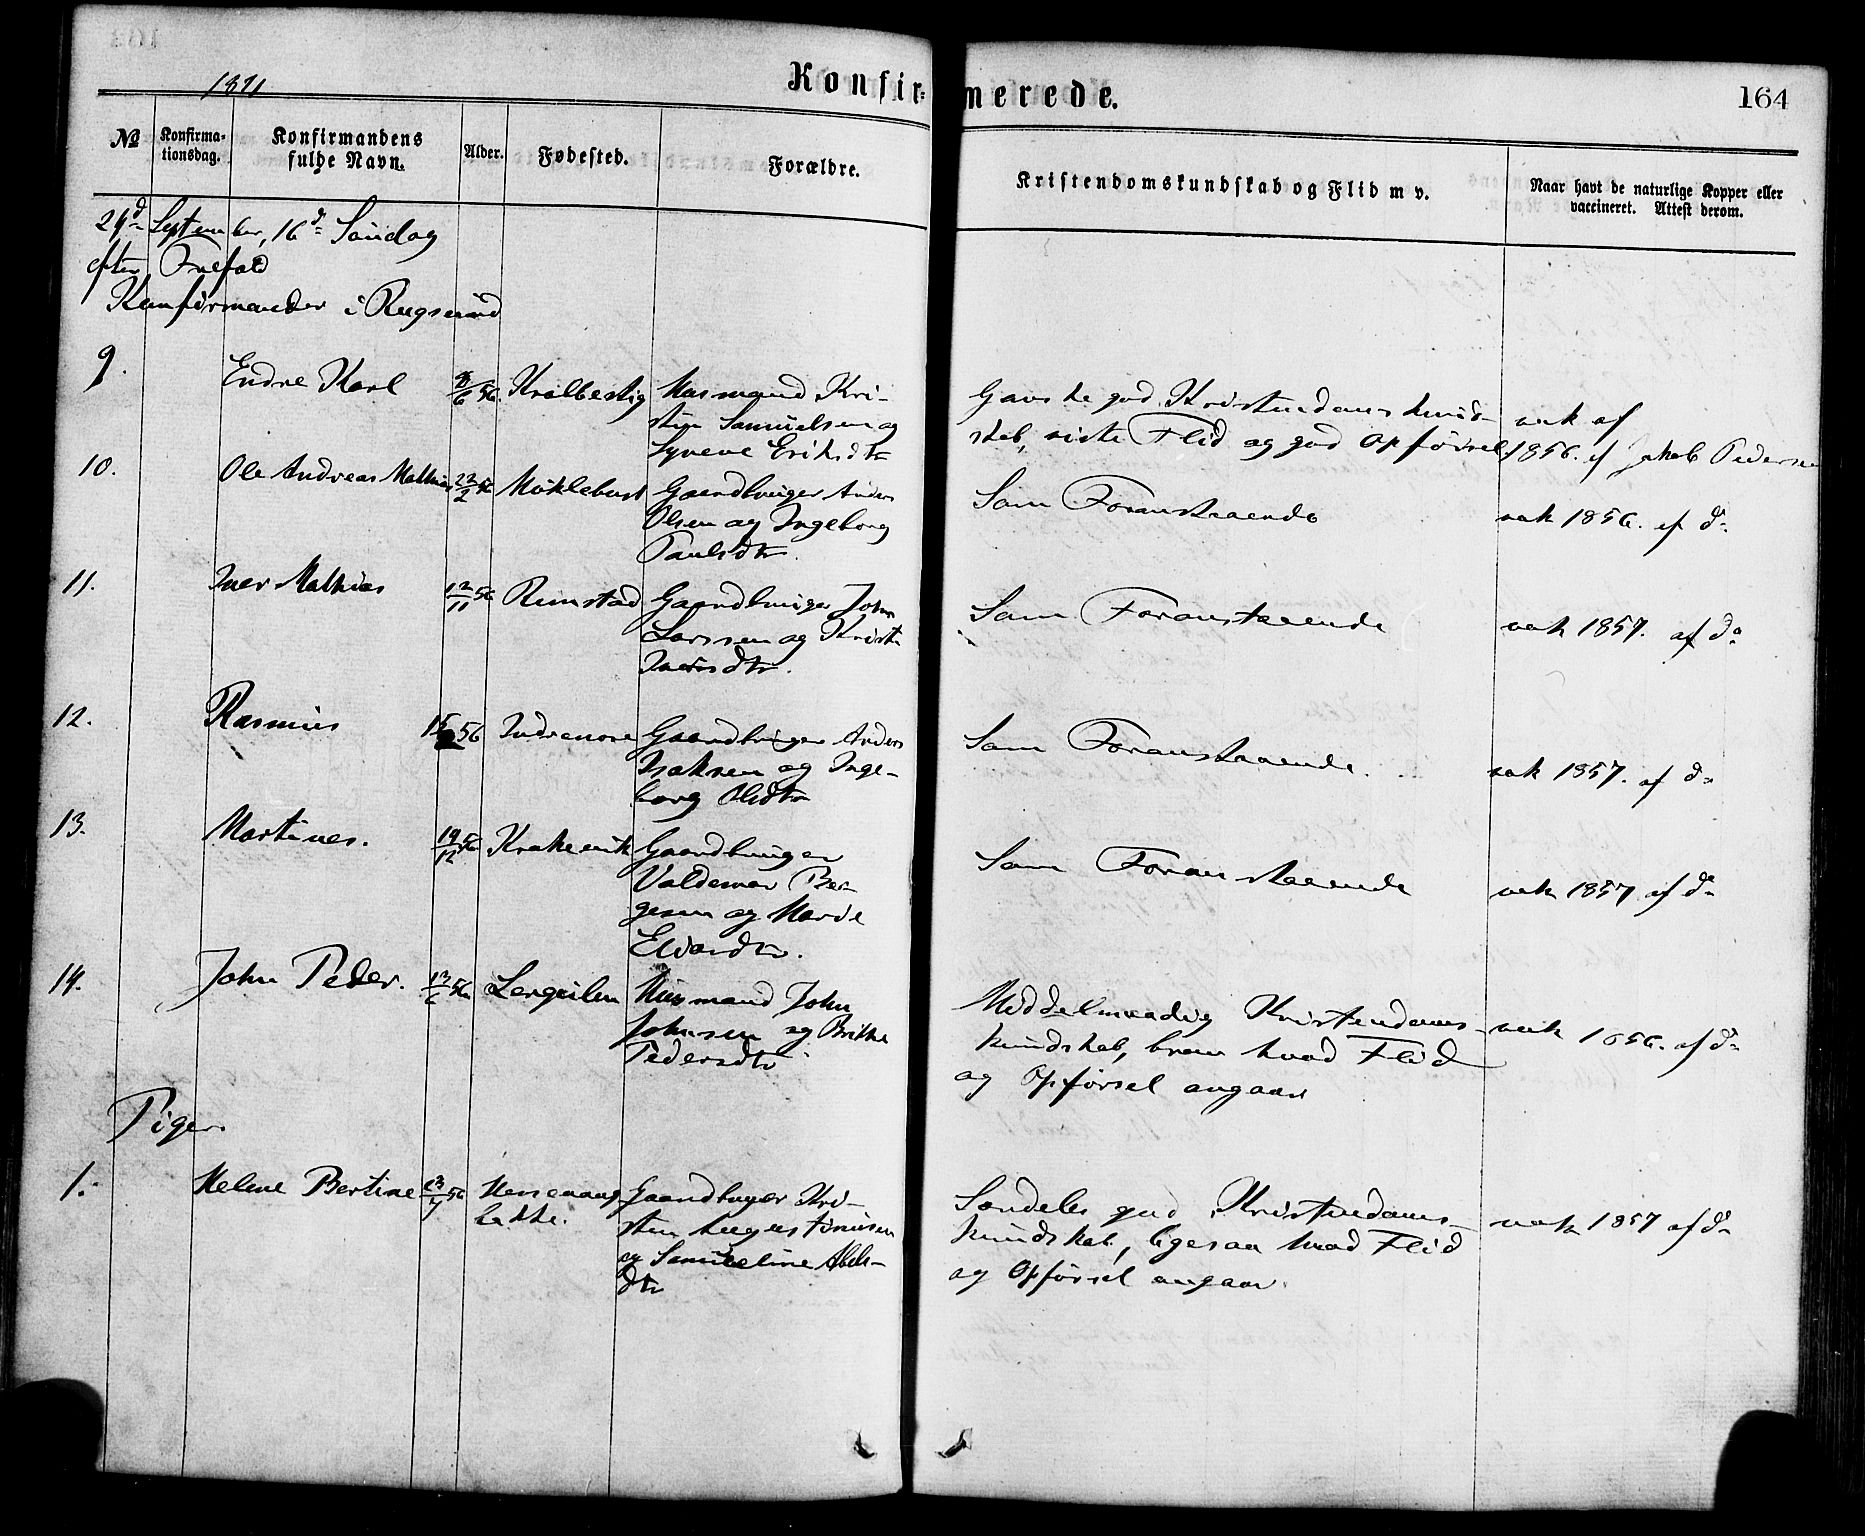 1871
Konfir-
merede.
164
№
Konfirma-
tionsdag.
Konfirmandens
fulde Navn.
Alder.
Fødested.
Forældre.
Kristendomskundskab og Flid m v.
Naar havt de naturlige Kopper eller
vaccineret. Attest derom.
24d September, 16d Søndag
efter Trefold
Konfirmander i Rugsund
9.
Endre Karl
8/6 56.
Kvalbestig
Husmand Kri-
sten Samuelsen og
Syneve Eriksdtr
Ganske god Kristendomskund-
skab, Flid og god Opførsel.
vak af
1856. af Jakob Pedersen
10.
Ole Andreas Mathias
22/2 56
Møklebust
Gaardbruger Anders
Olsen og Ingeborg
Paulsdtr.
Som Foranstaaende
vak 1856. af do
11.
Iver Mathias
12/11 56
Rimstad
Gaardbruger John
Larssen og Krist
Iversdtr.
Som Foranstaaende
vak 1857. af do
12.
Rasmus
56
Indrenore
Gaardbruger Anders
Isaksen og Inge-
borg Olsdtr
Som Foranstaaende.
vak 1857. af do
13.
Martines.
19/12 56
Krakevik
Gaardbruger
Valdemar Bør-
gesen og Marie
Elvardtr.
Som Foranstaaende
vak 1857 af do
14.
John Peder.
13/6 56
Lergulen
Husmand John
Johnsen og Brithe
Pedersdtr
Middelmaadig Kristendoms-
kundskab, brav hvad Flid
og Opførsel angaar
vak 1856. af do
Piger.
1.
Helene Bertine
23/7 56
Gaardbruger Kri-
sten Augustinusen
og Samueline Abels-
dtr
Særdeles god Kristendoms-
kundskab, ligesaa hvad Flid
og Opførsel angaar.
vak 1857 af do